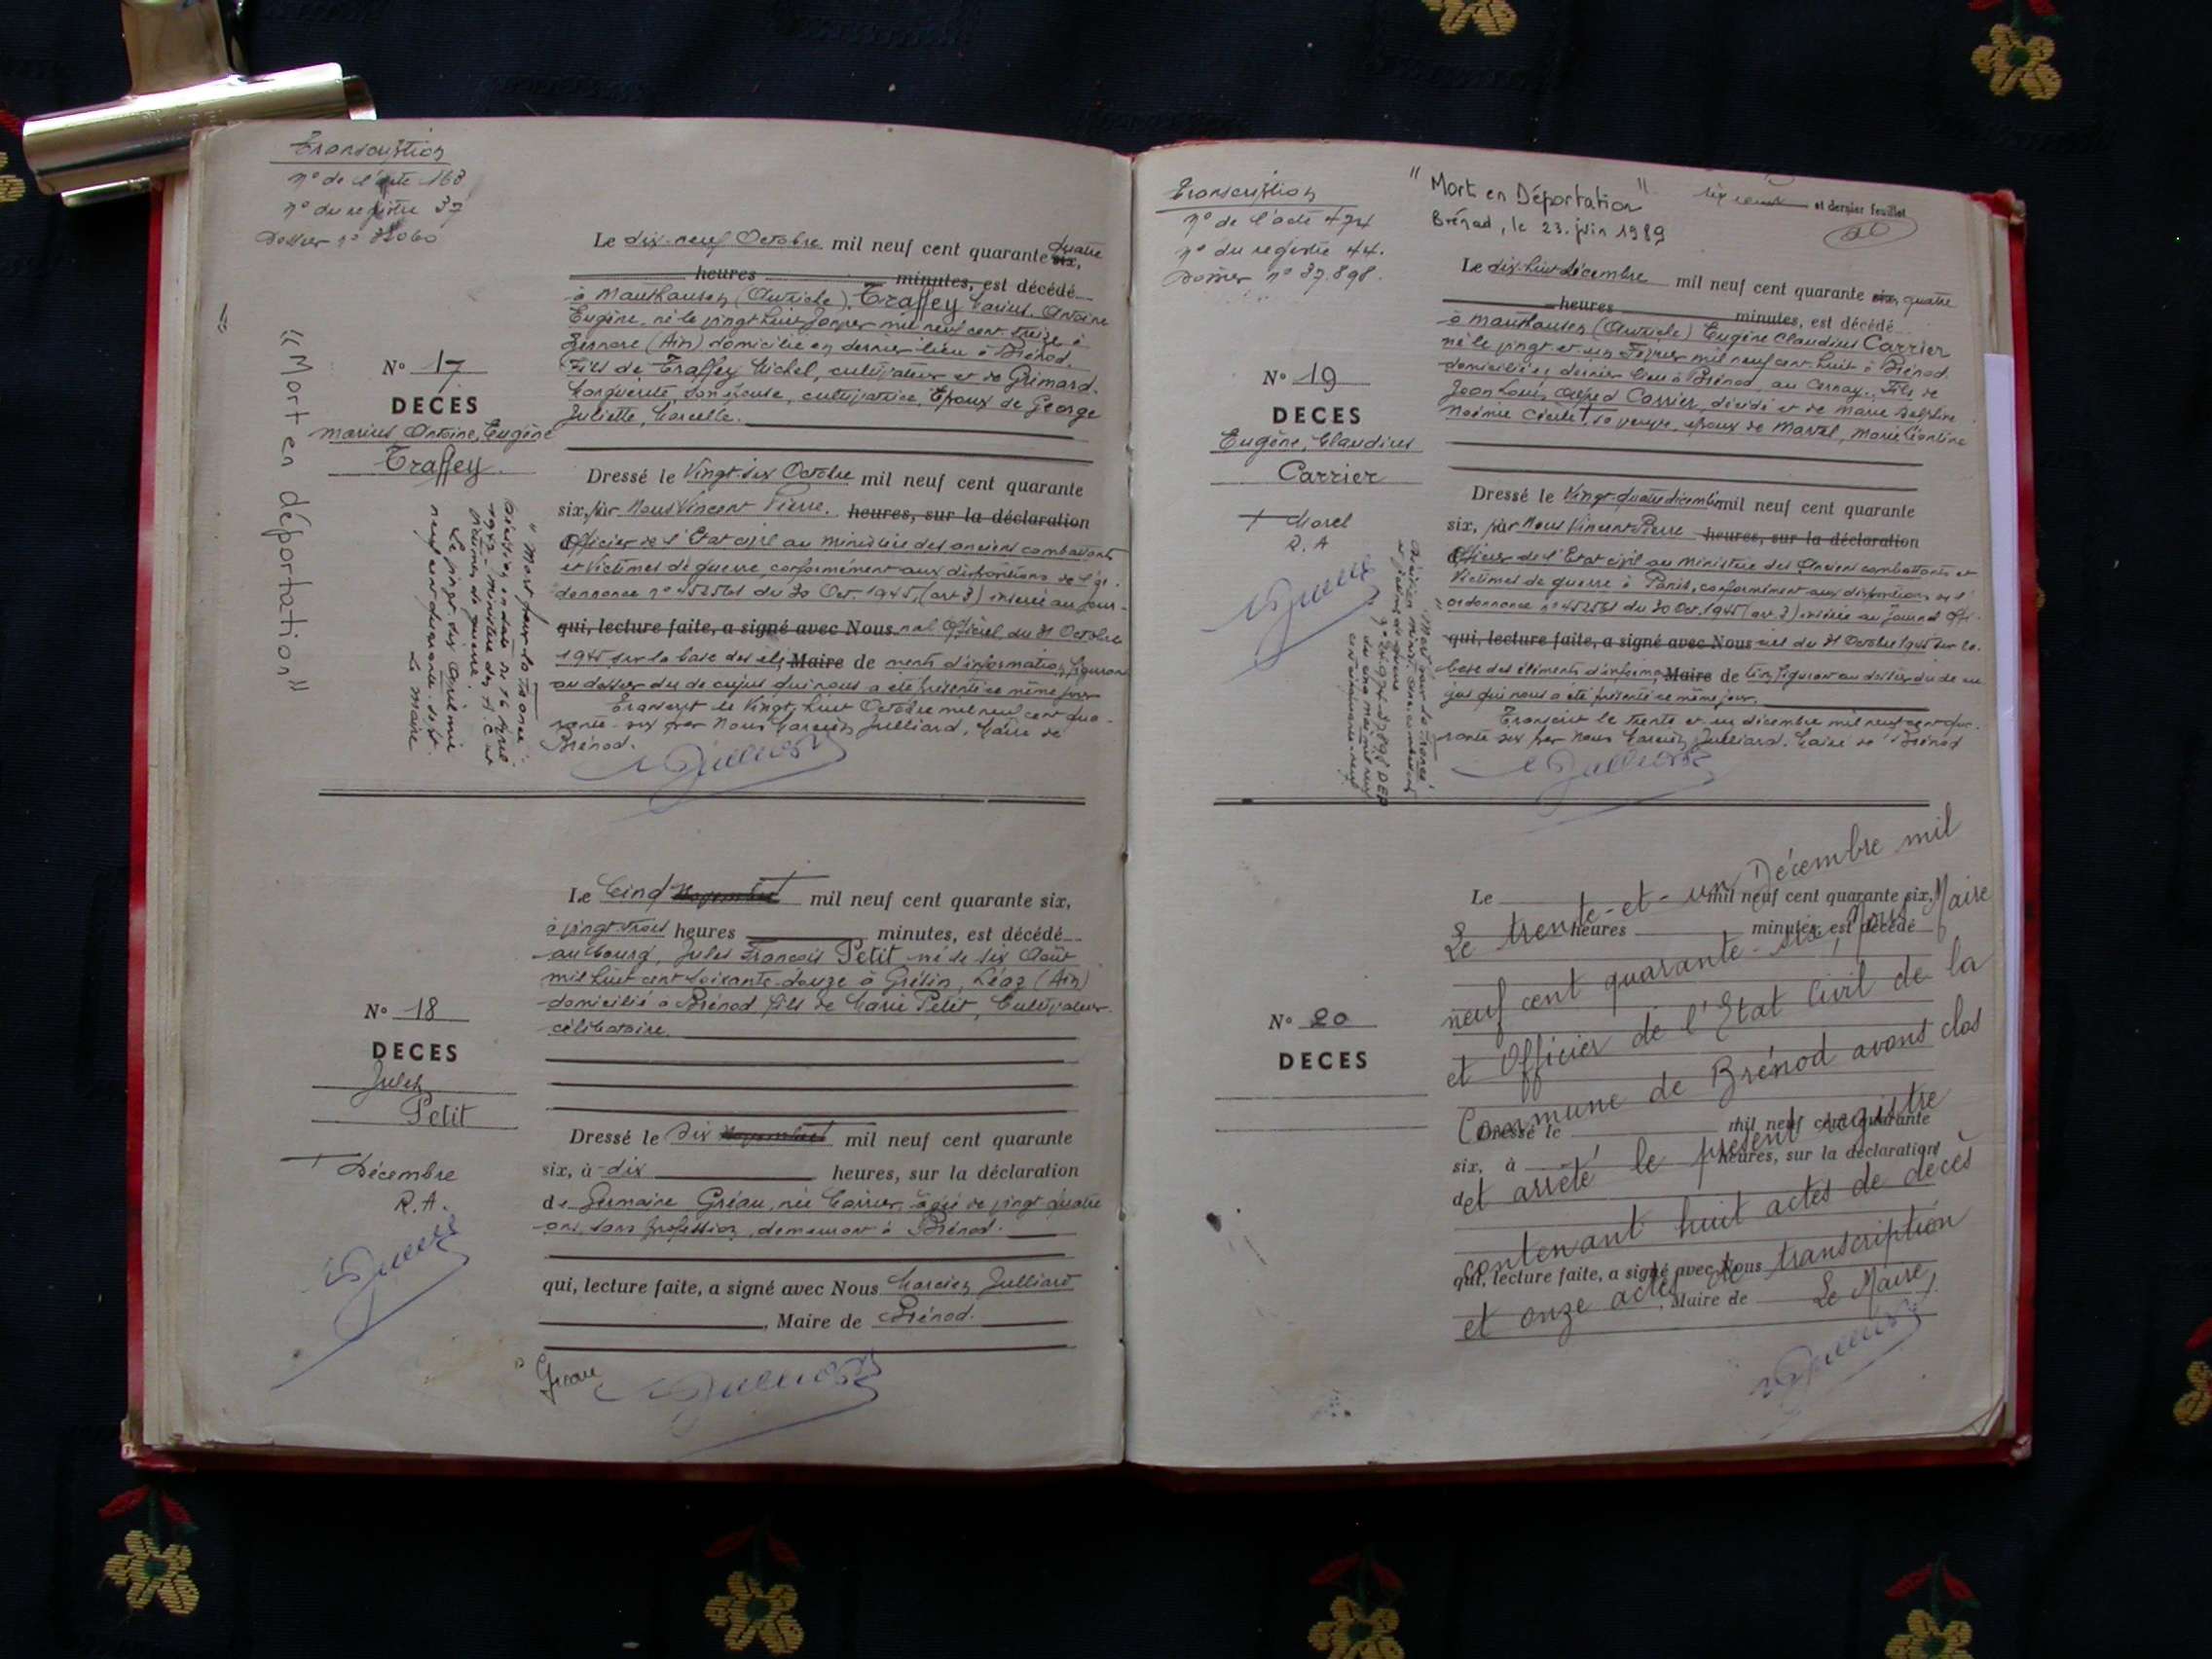 Transcription
n° de l'acte 163
n° du registre 37
Dossier n°
"Mort en déportation"
N° 17
DECES
Marius, Antoine, Eugène
Traffey
"Mort pour la France"
Décision en date du 16 Avril
1947 - Ministère des A.C. et
victimes de guerre.
Le vingt six Avril mil
neuf cent quarante sept.
Le Maire
Le dix-neuf Octobre mil neuf cent quarante six, quatre
heures minutes, est décédé
à Mauthausen (Autriche) Traffey Marius Antoine
Eugène, né le vingt huit Janvier mil neuf cent treize à
(Ain) domicilié en dernier lieu à Brénod.
Fils de Traffey Michel, cultivateur et de Grimard
Marguerite, son épouse, cultivatrice, Epoux de George
Juliette, Marcelle.
Dressé le Vingt-six Octobre mil neuf cent quarante
six, par Nous Vincent Pierre, heures, sur la déclaration
Officier de l'Etat civil au Ministère des anciens combattants
et Victimes de guerre, conformément aux dispositions de l'or-
donnance n° 452561 du 30 Oct. 1945, (art 3) insérée au Jour-
qui, lecture faite, a signé avec Nous nal Officiel du 31 Octobre
1945 sur la base des élé Maire de ments d'information figurant
au dossier du de cujus qui nous a été présenté ce même jour
Transcrit le Vingt, huit Octobre mil neuf cent qua-
rante-six par Nous Marcien Julliard, Maire de
Brénod.
N° 18
DECES
Jules
Petit
Décembre
R.A.
Le Cinq Novembre mil neuf cent quarante six,
à vingt-trois heures minutes, est décédé
au bourg, Jules François Petit né le six Août
mil huit cent soixante-douze à Grésin, Léaz (Ain)
domicilié à Brénod fils de Marie Petit, Cultivateur
célibataire
Dressé le Six Novembre mil neuf cent quarante
six, à dix heures, sur la déclaration
de Germaine Gréau, née Carrier, âgée de vingt-quatre
ans, sans profession, demeurant à Brénod.
qui, lecture faite, a signé avec Nous Marcien Julliard
, Maire de Brénod.
Gréau
Transcription
n° de l'acte 474
n° du registre 44.
Dossier n° 37.898.
"Mort en Déportation"
Brénod, le 23 juin 1989
et dernier feuillet
N° 19
DECES
Eugène, Claudius
Carrier
+ Morel
R.A
"Mort pour la France"
Le dix huit Décembre mil neuf cent quarante six, quatre
heures minutes, est décédé
à Mauthausen (Autriche) Eugène Claudius Carrier
né le vingt et un Février mil neuf cent huit à Brénod.
domicilié en dernier lieu à Brénod au Cernay. Fils de
Jean Louis, Alfred Carrier, décédé et de Marie Delphine
Noémie sa veuve, époux de Marcel, Marie Léontine
Dressé le Vingt-quatre décembre mil neuf cent quarante
six, par Nous Vincent Pierre heures, sur la déclaration
Officier de l'Etat civil au Ministère des Anciens combattants et
Victimes de guerre à Paris, conformément aux dispositions de l'
ordonnance n° 452561 du 30 Oct. 1945 (art. 3) insérée au Journal Offi-
qui, lecture faite, a signé avec Nous ciel du 31 Octobre 1945 sur la
base des éléments d'informa Maire de tion figurant au dossier du de cu-
jus qui nous a été présenté ce même jour.
Transcrit le trente et un décembre mil neuf cent qua-
rante six par Nous Marcien Julliard, Maire de Brénod
N° 20
DECES
Le mil neuf cent quarante six,
heures minutes, est décédé
Dressé le mil neuf cent quarante
six, à heures, sur la déclaration
de
qui, lecture faite, a signé avec Nous
, Maire de
Le trente-et-un Décembre mil
neuf cent quarante-six, Nous Maire
et Officier de l'Etat Civil de la
Commune de Brénod avons clos
et arrêté le présent registre
contenant huit actes de décès
et onze actes de transcription
Le Maire,